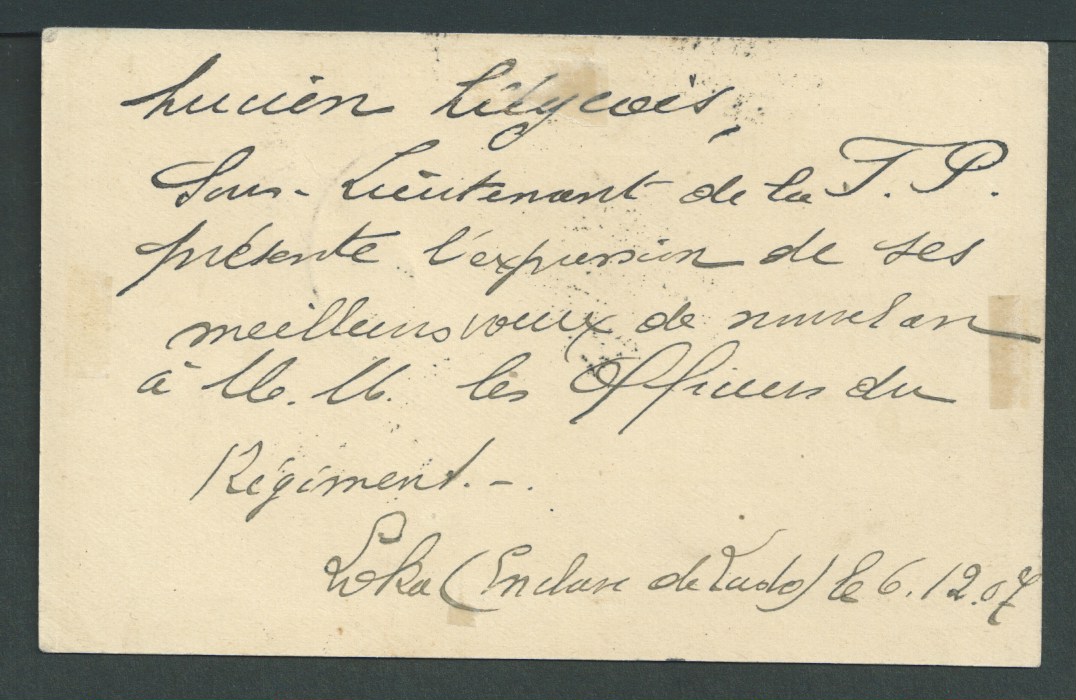 Lucien Liégeois,
Sous-Lieutenant de la F. P.
présente l'expression de ses
meilleurs voeux de nouvel an
à M. M. les Officiers du
Régiment. -.
Loka (Enclave de Lado) le 6.12.07